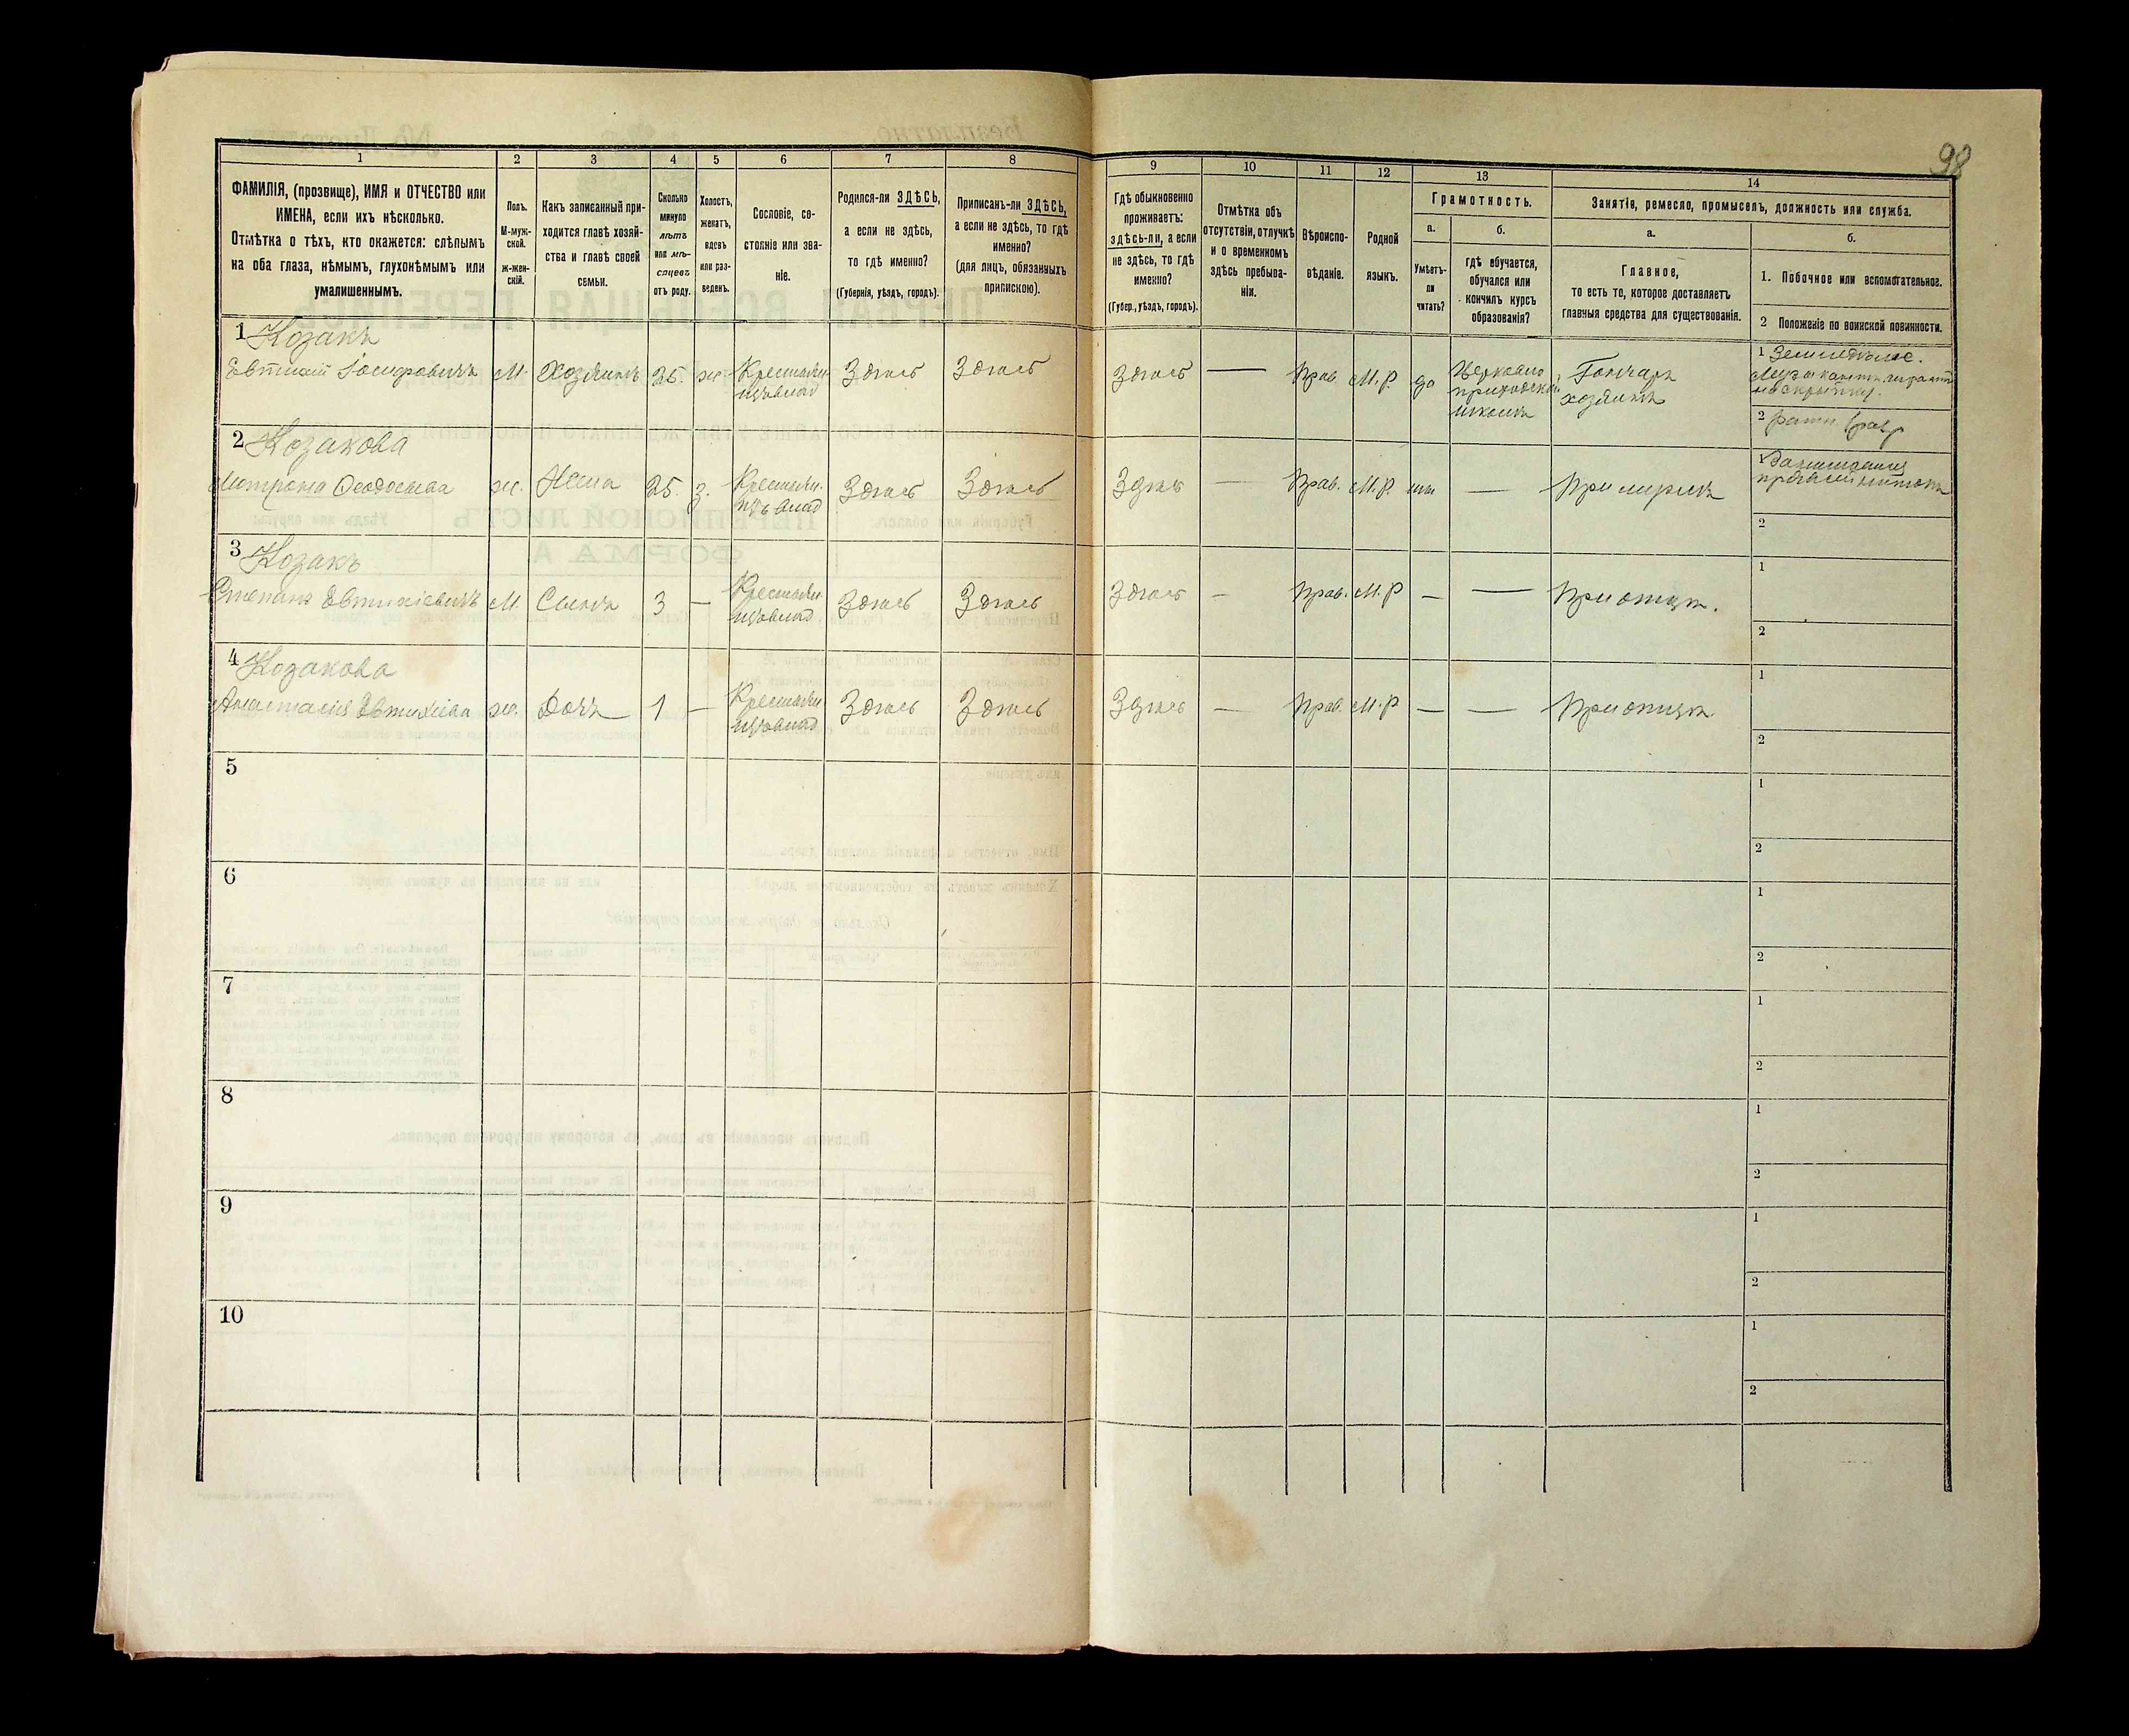 98
1
2
3
4
5
6
7
8
9
10
11
12
13
14
ФАМИЛІЯ, (прозвище), ИМЯ и ОТЧЕСТВО или
ИМЕНА, если ихъ нѣсколько.
Отмѣтка о тѣхъ, кто окажется: слѣпымъ
на оба глаза, нѣмымъ, глухонѣмымъ или
умалишеннымъ.
Полъ.
М-муж-
ской.
ж-жен-
скій.
Какъ записанный при-
ходится главѣ хозяй-
ства и главѣ своей
семьи.
Сколько
минуло
лѣтъ
или мѣ-
сяцевъ
отъ роду.
Холостъ,
женатъ,
вдовъ
или раз-
веденъ.
Сословіе, со-
стояніе или зва-
ніе.
Родился-ли ЗДѢСЬ,
а если не здѣсь,
то гдѣ именно?
(Губернія, уѣздъ, городъ).
Приписанъ-ли ЗДѢСЬ,
а если не здѣсь, то гдѣ
именно?
(для лицъ, обязанныхъ
припискою).
Гдѣ обыкновенно
проживаетъ:
здѣсь-ли, а если
не здѣсь, то гдѣ
именно?
(Губер., уѣздъ, городъ).
Отмѣтка объ
отсутствіи, отлучкѣ
и о временномъ
здѣсь пребыва-
ніи.
Вѣроиспо-
вѣданіе.
Родной
языкъ.
Грамотность.
а.
Умѣетъ-
ли
читать?
б.
гдѣ обучается,
обучался или
кончилъ курсъ
образованія?
Занятія, ремесло, промыселъ, должность или служба.
а.
Главное,
то есть то, которое доставляетъ
главныя средства для существованія.
б.
1. Побочное или вспомогательное.
2 Положеніе по воинской повинности.
1 Козакъ
Евтихій Іосифовичъ М. Хозяинъ 25. ж. Крестьян.
изъ влад Здѣсь Здѣсь Здѣсь — Прав. М.Р. да Церковно
приходской
школѣ Гончаръ
хозяинъ
1 Земледѣліе.
Музыкантъ играетъ
на скрипку.
2 ратн
2 Козакова
Митрона Феодосіева ж. Жена 25. З. Крестьян.
изъ влад Здѣсь Здѣсь Здѣсь — Прав. М.Р. — При мужѣ
1
2
3 Козакъ
Степанъ Евтихіевичъ М. Сынъ 3 — Крестьян
изъ влад Здѣсь Здѣсь Здѣсь — Прав. М.Р — — При отцѣ.
1
2
4 Козакова
Анастасія Евтихіева ж. Дочь 1 — Крестьян
изъ влад Здѣсь Здѣсь Здѣсь — Прав. М.Р — — При отцѣ
1
2
5
1
2
6
1
2
7
1
2
8
1
2
9
1
2
10
1
2